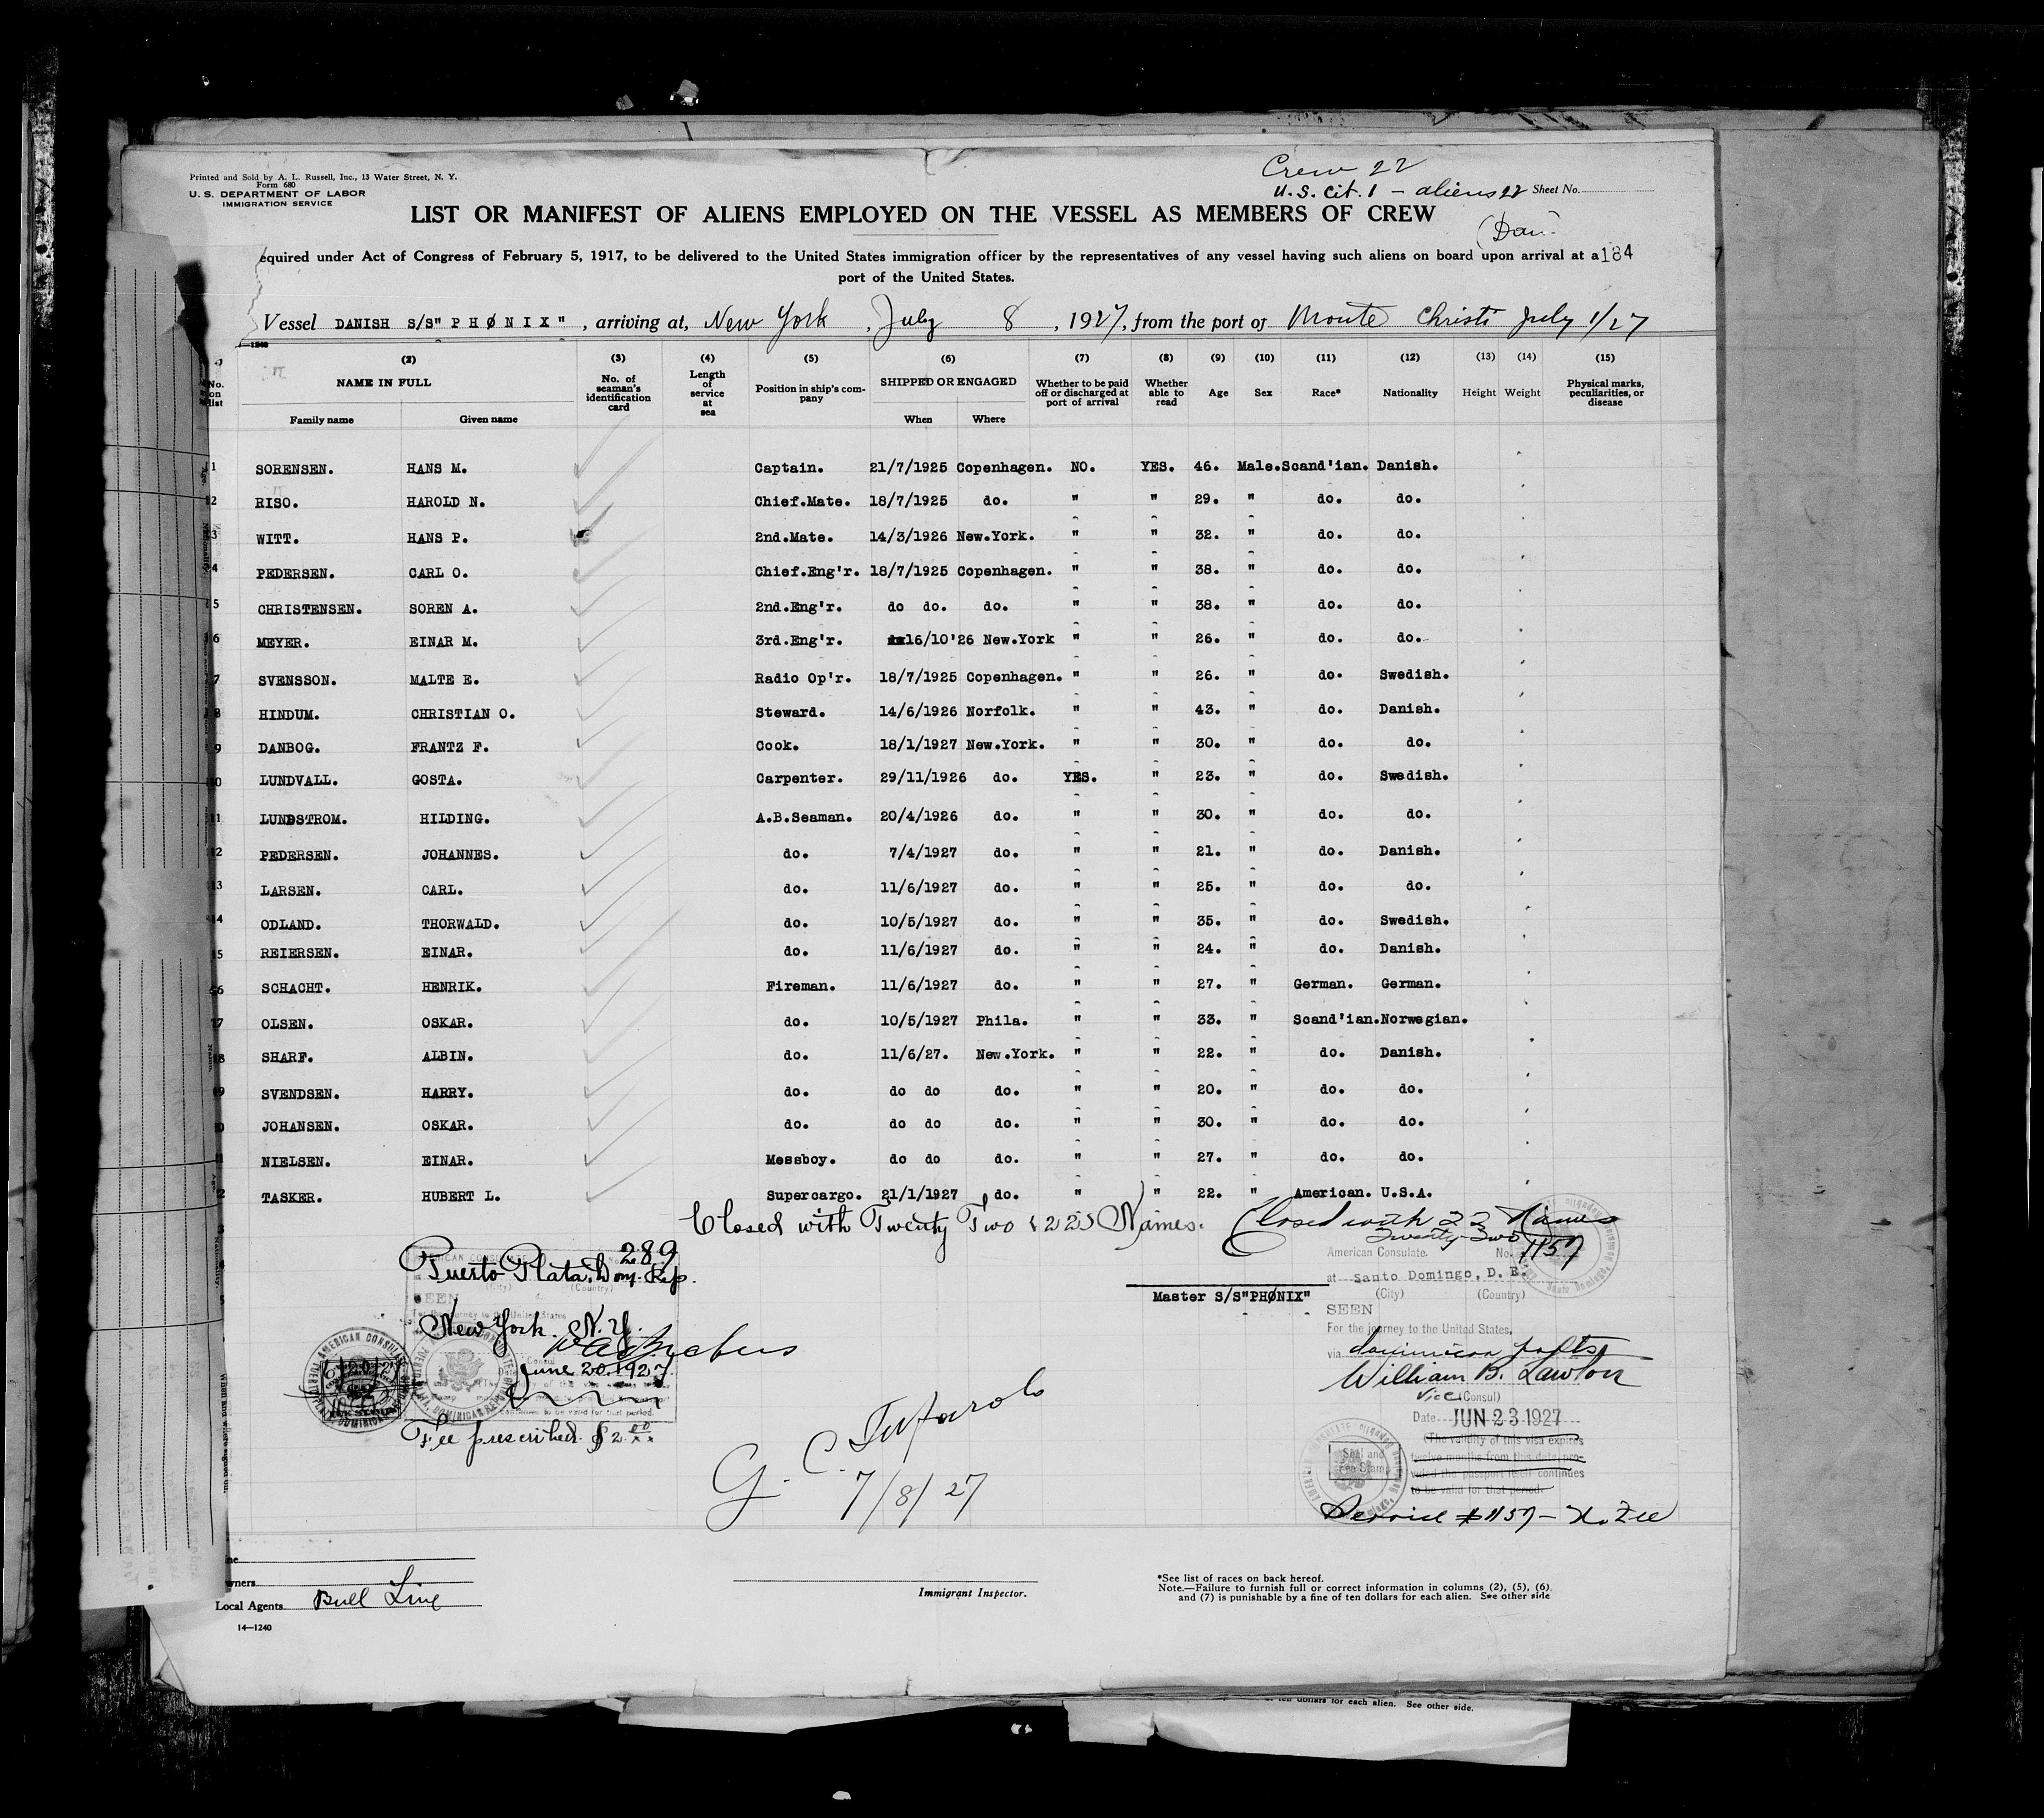 Printed and Sold by A. L. Russell, Inc., 13 Water Street, N. Y.
Form 680
U. S. DEPARTMENT OF LABOR
IMMIGRATION SERVICE
Crew 22
U. S. Cit. 1 — aliens 22 Sheet No.
LIST OR MANIFEST OF ALIENS EMPLOYED ON THE VESSEL AS MEMBERS OF CREW
(Dan.
equired under Act of Congress of February 5, 1917, to be delivered to the United States immigration officer by the representatives of any vessel having such aliens on board upon arrival at a 184
port of the United States.
Vessel DANISH S/S" P H Ø N I X " , arriving at, New York , July 8 , 1927, from the port of Monte Christi July 1/27
(2) (3) (4) (5) (6) (7) (8) (9) (10) (11) (12) (13) (14) (15)
No. on list NAME IN FULL No. of seaman's identification card Length of service at sea Position in ship's company SHIPPED OR ENGAGED Whether to be paid off or discharged at port of arrival Whether able to read Age Sex Race* Nationality Height Weight Physical marks, peculiarities, or disease
Family name Given name When Where
1 SORENSEN. HANS M. Captain. 21/7/1925 Copenhagen. NO. YES. 46. Male. Scand'ian. Danish.
2 RISO. HAROLD N. Chief.Mate. 18/7/1925 do. " " 29. " do. do.
3 WITT. HANS P. 2nd.Mate. 14/3/1926 New.York. " " 32. " do. do.
4 PEDERSEN. CARL O. Chief.Eng'r. 18/7/1925 Copenhagen. " " 38. " do. do.
5 CHRISTENSEN. SOREN A. 2nd.Eng'r. do do. do. " " 38. " do. do.
6 MEYER. EINAR M. 3rd.Eng'r. 16/10'26 New.York " " 26. " do. do.
7 SVENSSON. MALTE E. Radio Op'r. 18/7/1925 Copenhagen. " " 26. " do. Swedish.
8 HINDUM. CHRISTIAN O. Steward. 14/6/1926 Norfolk. " " 43. " do. Danish.
9 DANBOG. FRANTZ F. Cook. 18/1/1927 New.York. " " 30. " do. do.
10 LUNDVALL. GOSTA. Carpenter. 29/11/1926 do. YES. " 23. " do. Swedish.
11 LUNDSTROM. HILDING. A.B.Seaman. 20/4/1926 do. " " 30. " do. do.
12 PEDERSEN. JOHANNES. do. 7/4/1927 do. " " 21. " do. Danish.
13 LARSEN. CARL. do. 11/6/1927 do. " " 25. " do. do.
14 ODLAND. THORWALD. do. 10/5/1927 do. " " 35. " do. Swedish.
15 REIERSEN. EINAR. do. 11/6/1927 do. " " 24. " do. Danish.
16 SCHACHT. HENRIK. Fireman. 11/6/1927 do. " " 27. " German. German.
17 OLSEN. OSKAR. do. 10/5/1927 Phila. " " 33. " Scand'ian. Norwegian.
18 SHARF. ALBIN. do. 11/6/27. New.York. " " 22. " do. Danish.
9 SVENDSEN. HARRY. do. do do do. " " 20. " do. do.
0 JOHANSEN. OSKAR. do. do do do. " " 30. " do. do.
1 NIELSEN. EINAR. Messboy. do do do. " " 27. " do. do.
2 TASKER. HUBERT L. Supercargo. 21/1/1927 do. " " 22. " American. U.S.A.
Closed with Twenty Two (22) Names. Closed with 22 Names
Twenty-two
American Consulate. No. 1157
at Santo Domingo, D. R.
(City) (Country)
SEEN
For the journey to the United States,
via dominican ports
William B. Lawton
Vice (Consul)
Date JUN 23 1927
(The validity of this visa expires
twelve months from this date pro-
vided the passport itself continues
to be valid for that period.
Seal and
Fee Stamp
Service #1157 — No Fee
Master S/S"PHØNIX"
289
Puerto Plata, Dom. Rep.
(City) (Country)
SEEN
New York. N.Y.
June 20, 1927.
Fee prescribed $2
G. C. Tufaro
7/8/27
wners
Local Agents Bull Line
14—1240
Immigrant Inspector.
*See list of races on back hereof.
Note.—Failure to furnish full or correct information in columns (2), (5), (6)
and (7) is punishable by a fine of ten dollars for each alien. See other side
ten dollars for each alien. See other side.